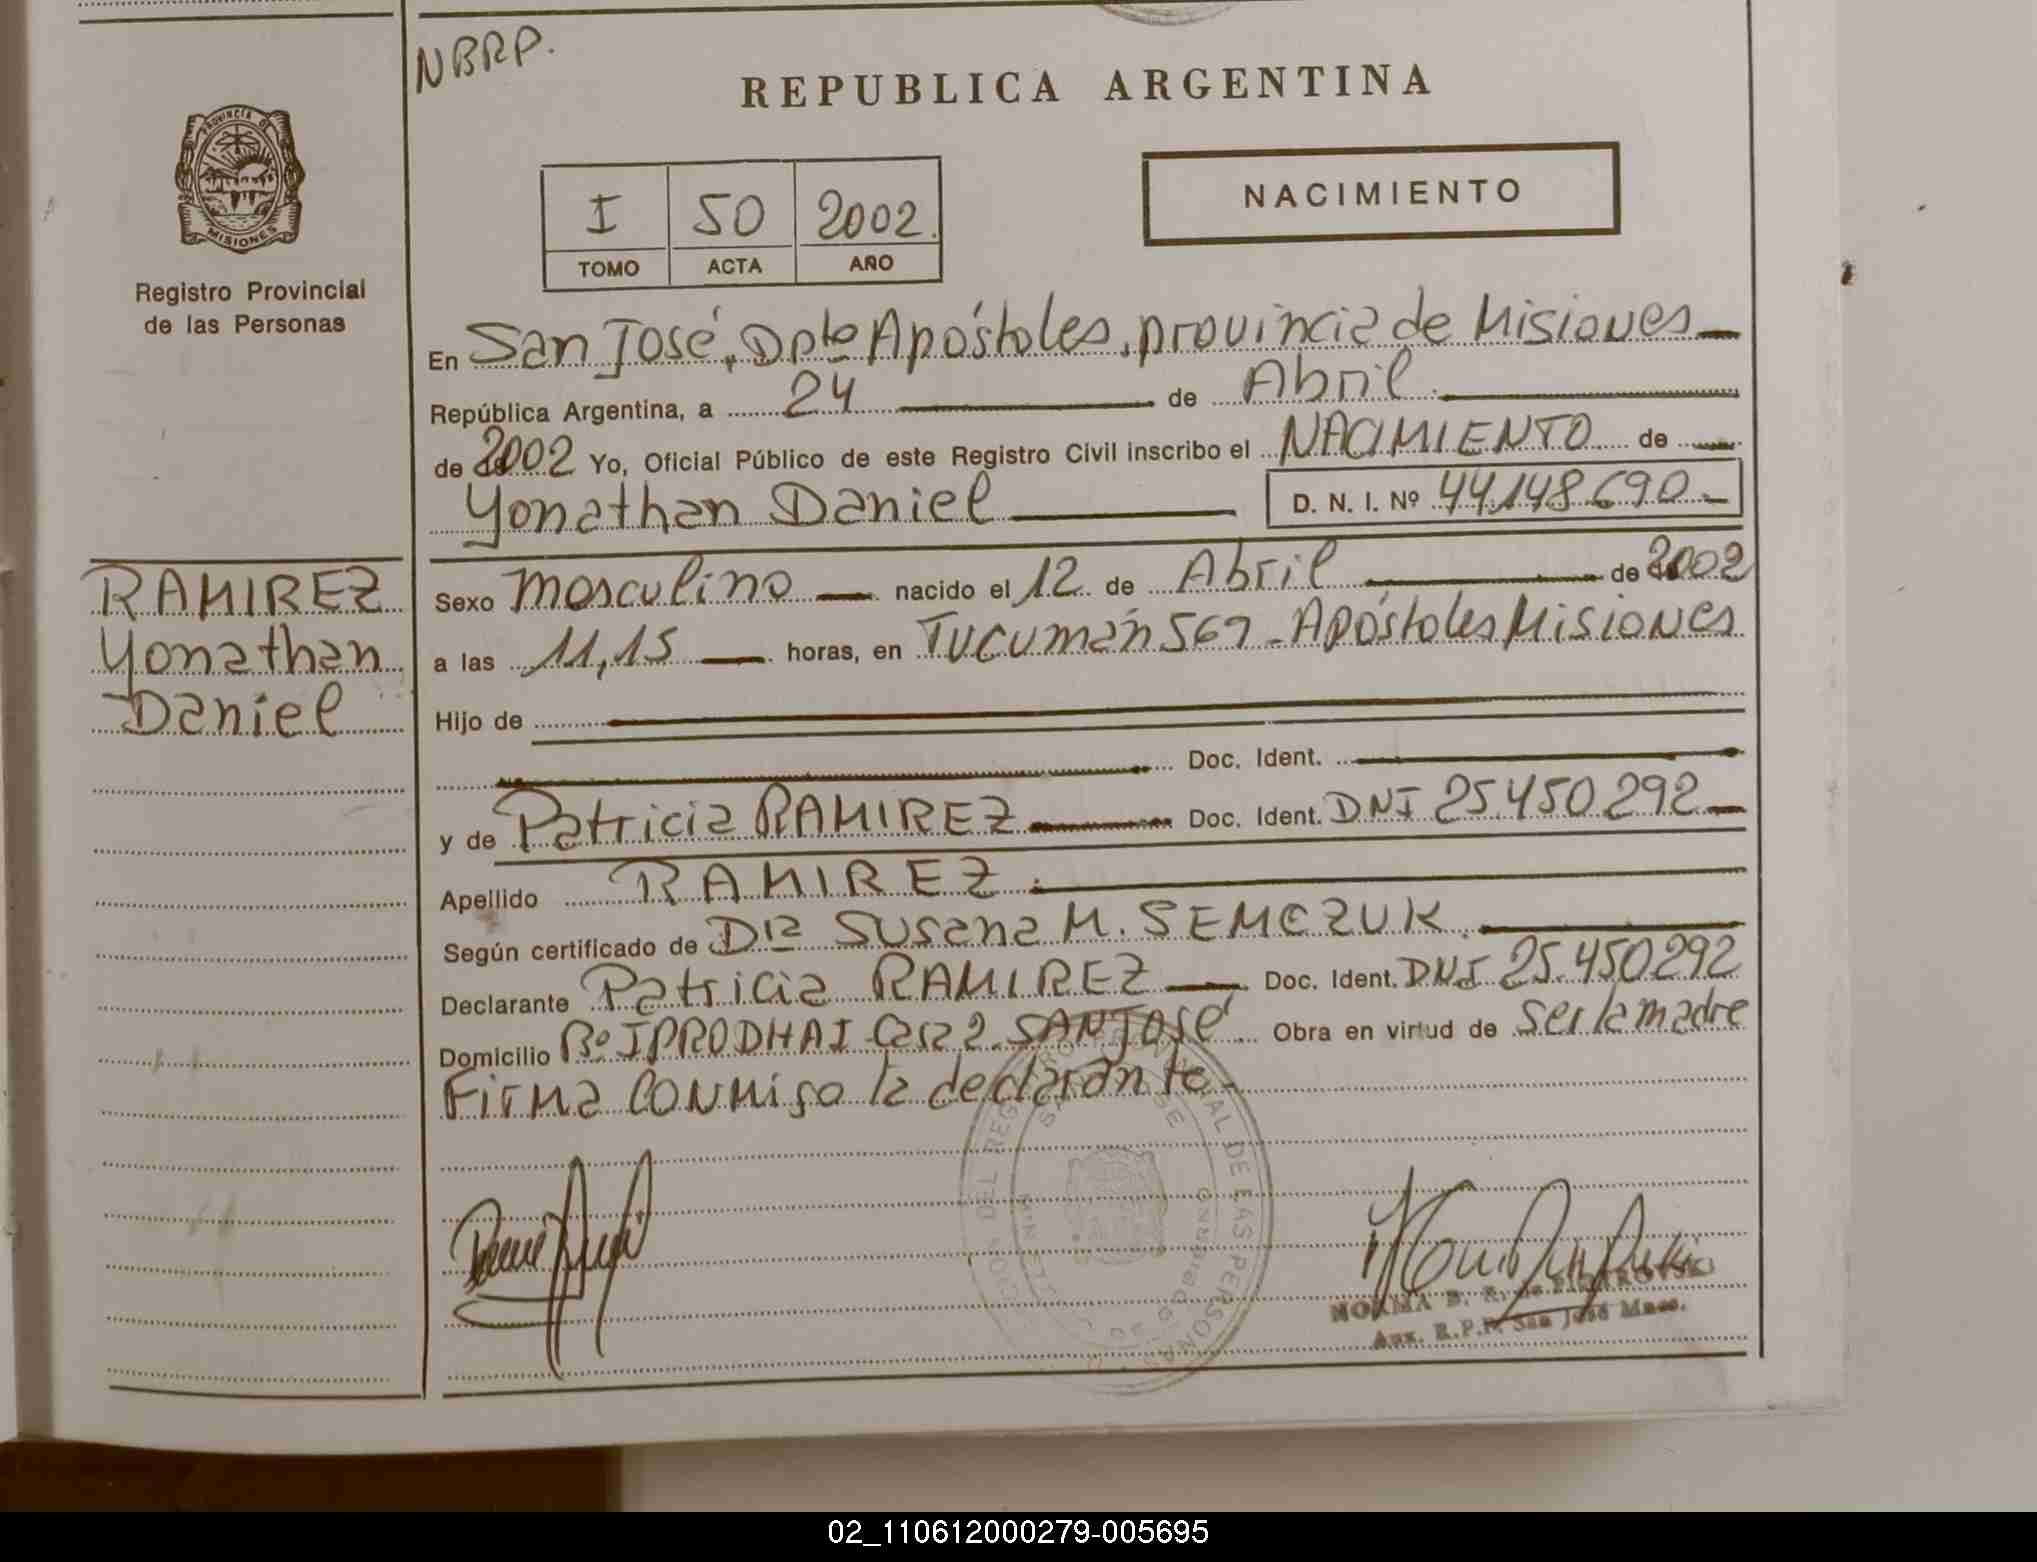 NBRP.
REPUBLICA ARGENTINA
PROVINCIA DE
MISIONES
Registro Provincial
de las Personas
I 50 2002.
TOMO ACTA AÑO
NACIMIENTO
En San José, Dpto Apóstoles, provincia de Misiones
República Argentina, a 24 de Abril
de 2002 Yo, Oficial Público de este Registro Civil inscribo el NACIMIENTO de
Yonathan Daniel D. N. I. Nº 44.148.690
RAMIREZ
Yonathan
Daniel
Sexo masculino nacido el 12 de Abril de 2002
a las 11,15 horas, en Tucumán 569 - Apóstoles Misiones
Hijo de
Doc. Ident.
y de Patricia RAMIREZ Doc. Ident. DNI 25.450.292
Apellido RAMIREZ.
Según certificado de Dra Susana M. SEMCZUK.
Declarante Patricia RAMIREZ Doc. Ident. DNI 25.450292
Domicilio Bº IPRODHAI Casa 2. SAN José Obra en virtud de ser la madre
Firma conmigo la declarante
NORMA B. R. de PIETROVSKI
Aux. R.P.P. San José Mnes.
02_110612000279-005695